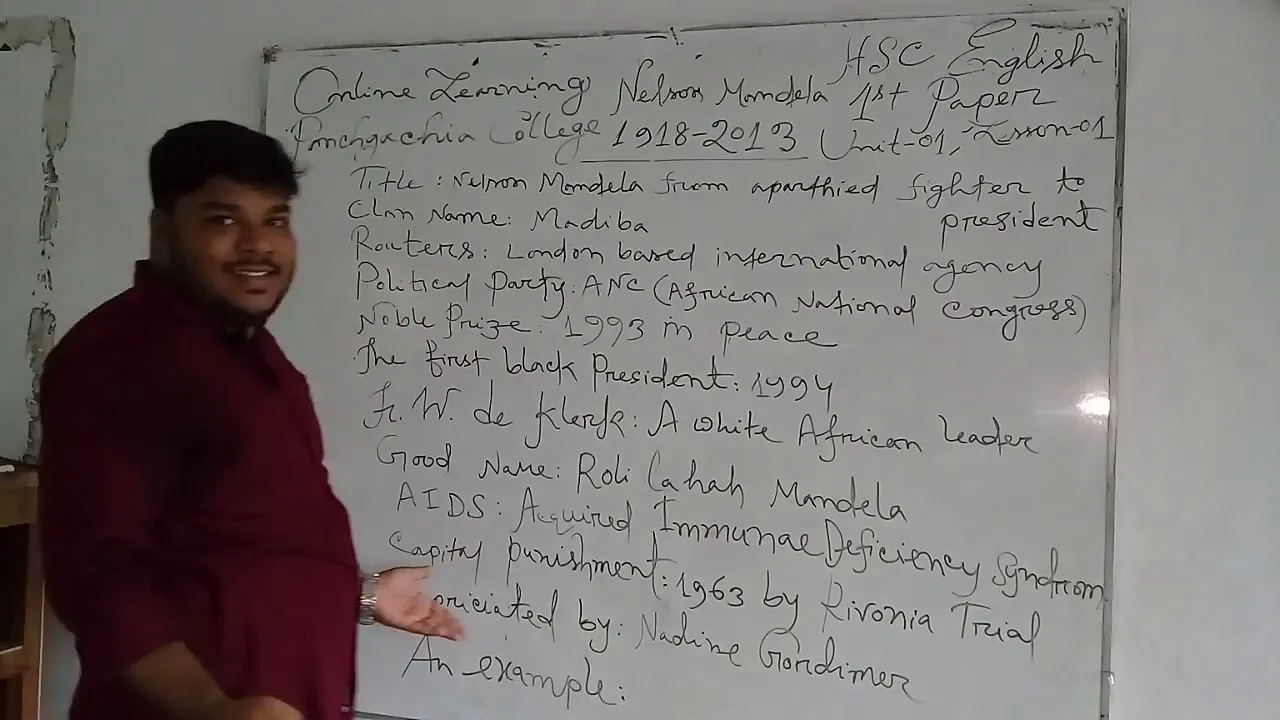 HSC English
Online Learning Nelson Mandela 1st Paper
Panchgachia College 1918-2013 Unit-01, Lesson-01
Title: Nelson Mandela from aparthied fighter to
president
Clan Name: Madiba
Routers: London based international agency
Political Party: ANC (African National Congress)
Noble Prize: 1993 in peace
The first black President: 1994
Fr. W. de Klerk: A white African leader
Good Name: Roli lahah Mandela
AIDS: Acquired Immunae Deficiency Syndrom
Capital punishment: 1963 by Rivonia Trial
priciated by: Nadine Gordimer
An example: